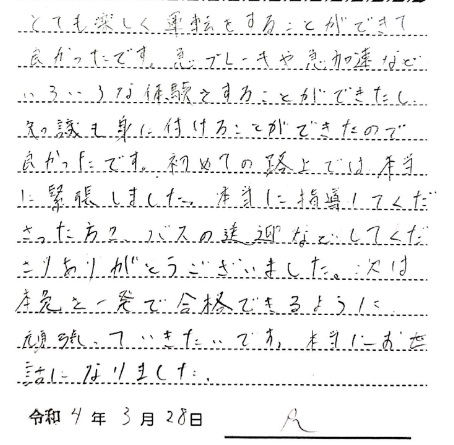 とても楽しく運転をすることができて
良かったです。急ブレーキや急加速など
いろいろな体験をすることができたし、
知識も身に付けることができたので
良かったです。初めての路上では本当
に緊張しました。本当に指導してくだ
さった方々、バスの送迎などしてくだ
さりありがとうございました。次は
本免を一発で合格できるように
頑張っていきたいです。本当にお世
話になりました。
令和4年3月28日